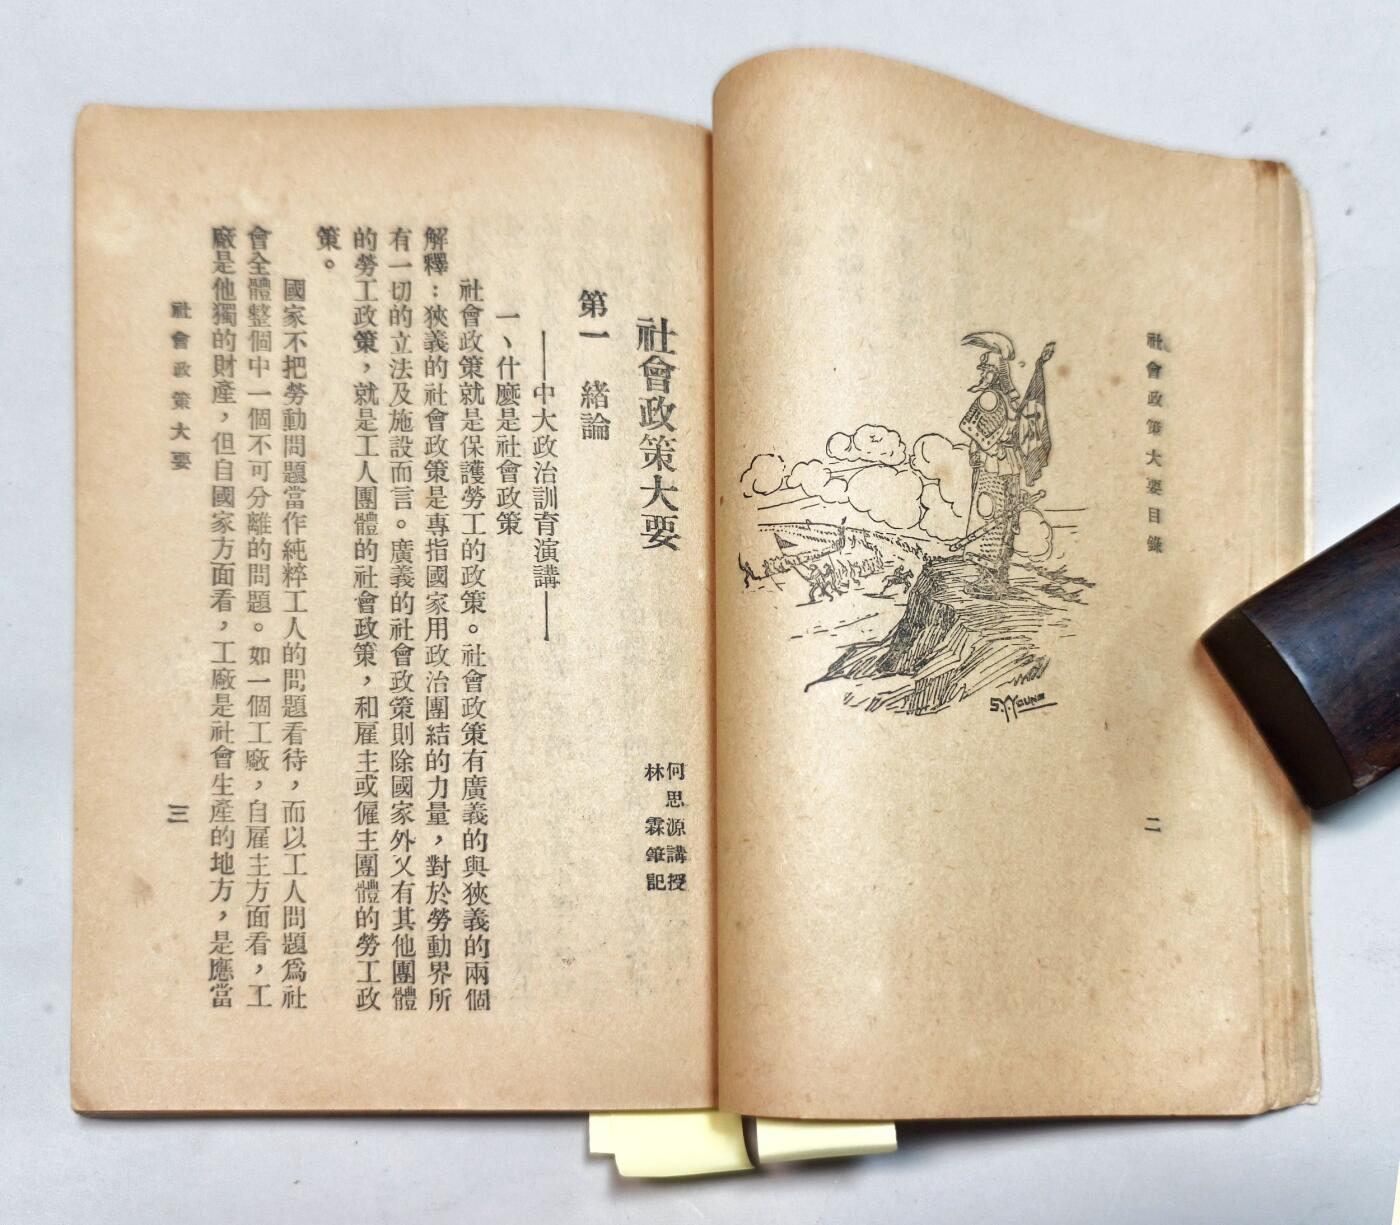 社會政策大要目錄
二
S.YOUNG
社會政策大要
何思源講授
林霖筆記
第一　緒論
——中大政治訓育演講——
一、什麼是社會政策
社會政策就是保護勞工的政策。社會政策有廣義的與狹義的兩個
解釋：狹義的社會政策是專指國家用政治團結的力量，對於勞動界所
有一切的立法及施設而言。廣義的社會政策則除國家外又有其他團體
的勞工政策，就是工人團體的社會政策，和雇主或僱主團體的勞工政
策。
國家不把勞動問題當作純粹工人的問題看待，而以工人問題爲社
會全體整個中一個不可分離的問題。如一個工廠，自雇主方面看，工
廠是他獨的財產，但自國家方面看，工廠是社會生產的地方，是應當
社會政策大要
三